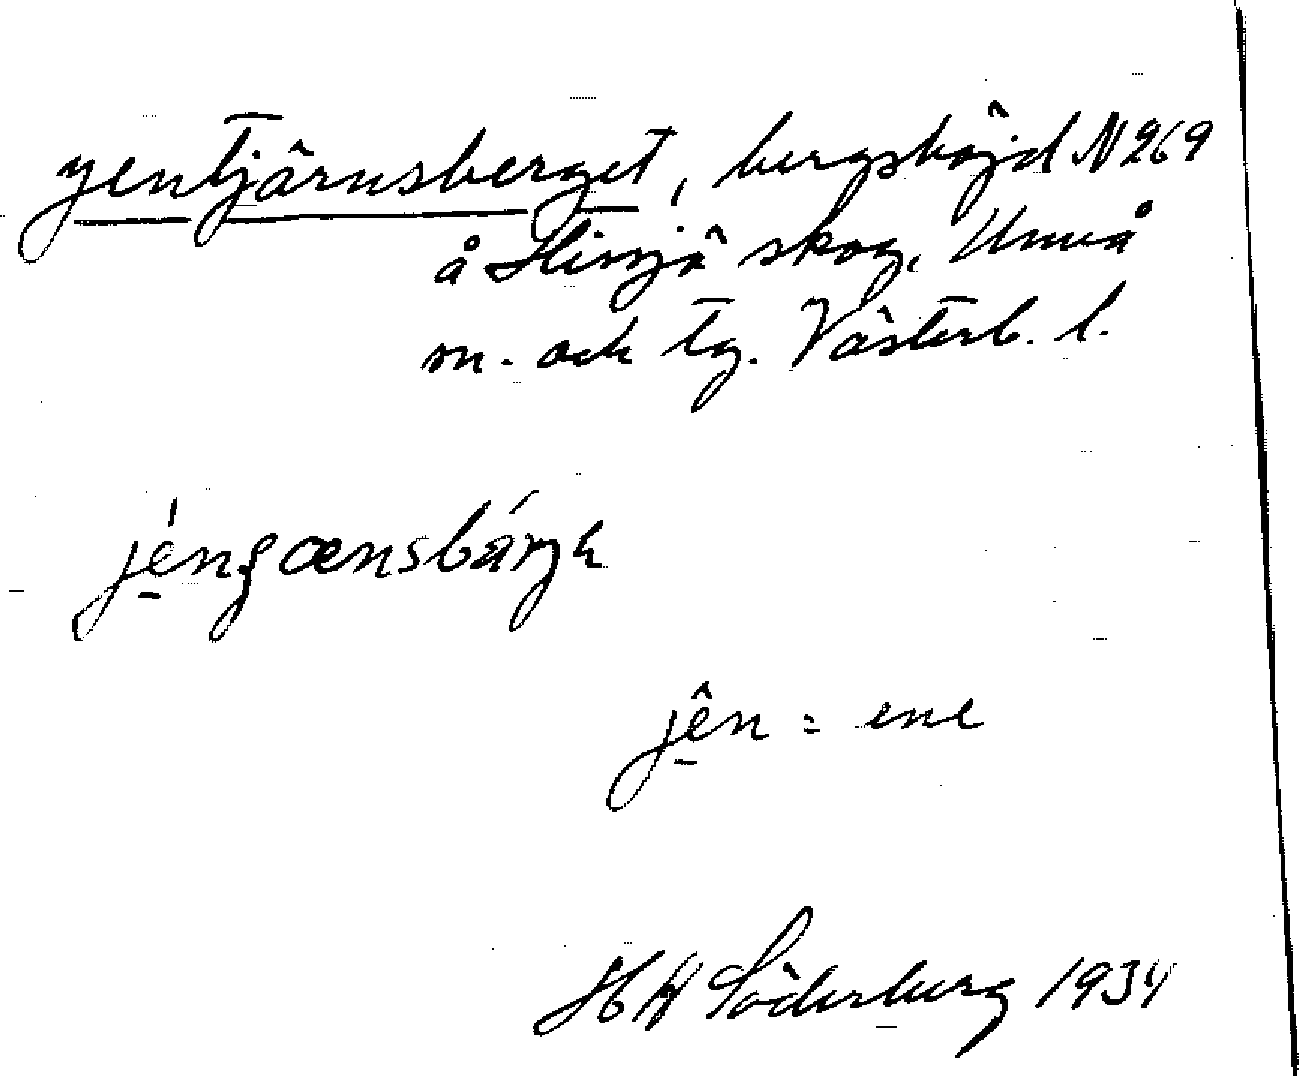 yentjärnsberget, bergshöjd N 269
å Hissjö skog, Umeå
m. och tg. Västerb. l.
jén ̧œnsbárjh
jên = ene
H H Söderberg 1934